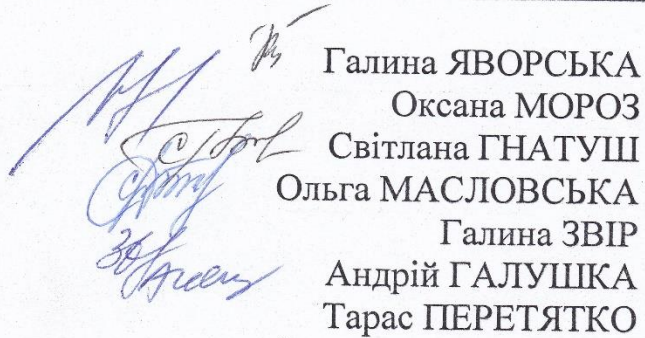 Галина ЯВОРСЬКА
Оксана МОРОЗ
Світлана ГНАТУШ
Ольга МАСЛОВСЬКА
Галина ЗВІР
Андрій ГАЛУШКА
Тарас ПЕРЕТЯТКО